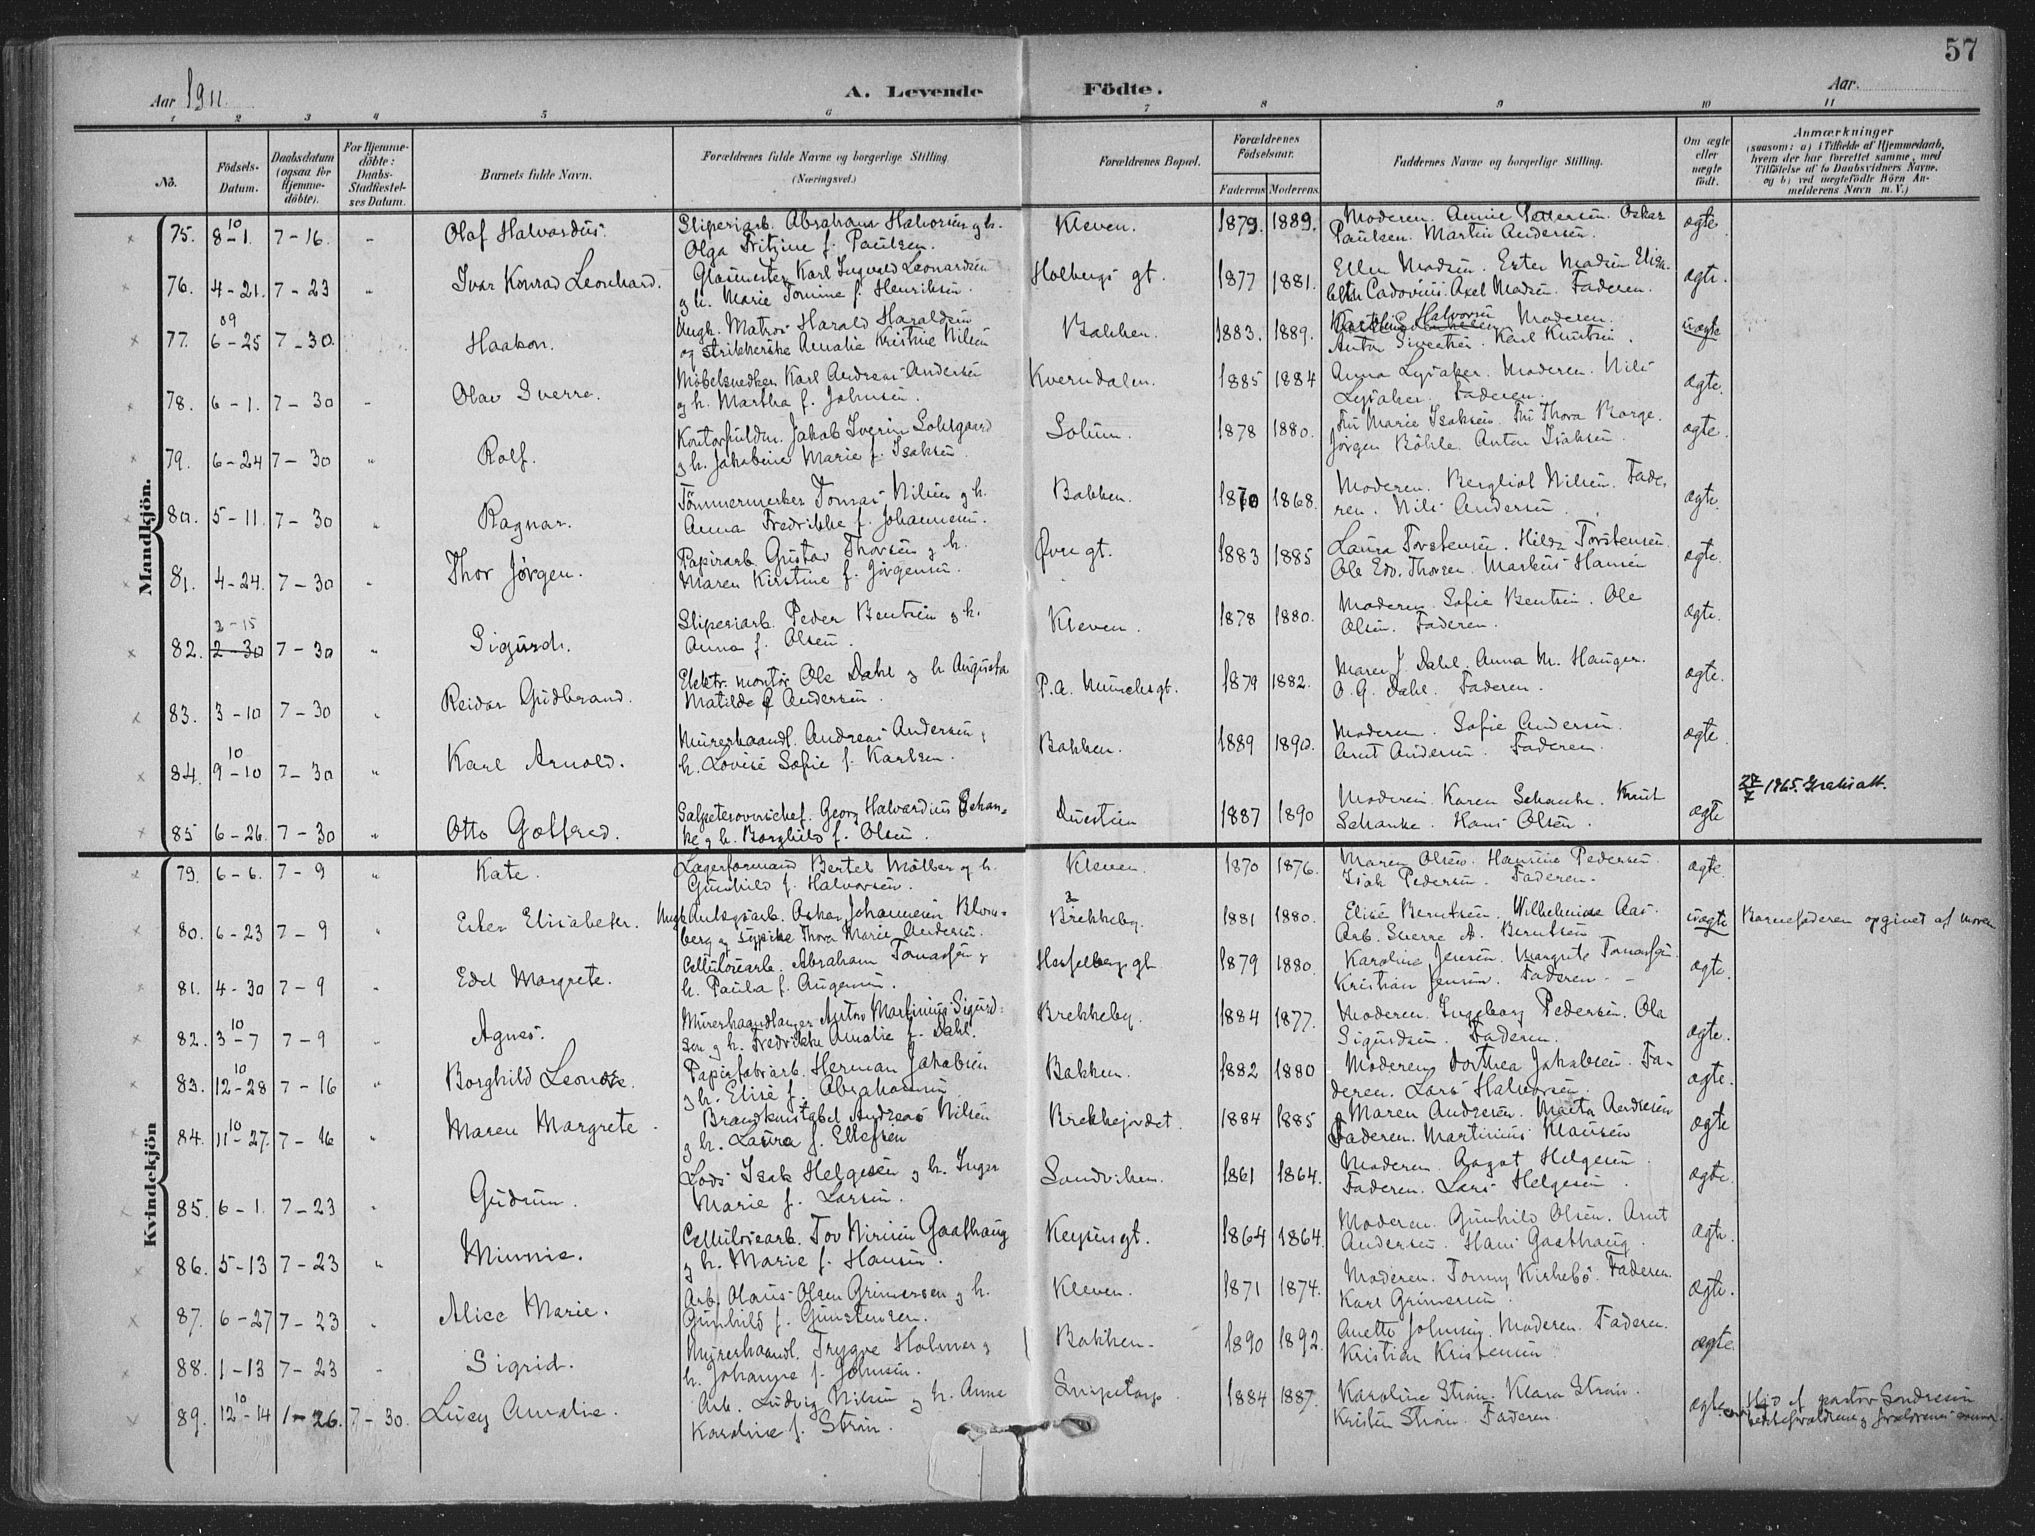 57
Aar 1911.
A. Levende Födte.
Aar
1 2 3 4 5 6 7 8 9 10 11
No.
Födsels-Datum.
Daabsdatum (ogsaa for Hjemme-döbte).
For Hjemme-döbte: Daabs-Stadfæstel-ses Datum.
Barnets fulde Navn.
Forældrenes fulde Navne og borgerlige Stilling. (Næringsvei.)
Forældrenes Bopæl.
Forældrenes Födselsaar.
Faderens Moderens
Faddernes Navne og borgerlige Stilling.
Om ægte eller uægte födt.
Anmærkninger
(saasom: a) i Tilfælde af Hjemmedaab, hvem der har forrettet samme, med Tilföielse af to Daabsvidners Navne, og b) ved uægtefödte Börn An-melderens Navn m. V.)
Mandkjön.
75. 8-10 1. 7-16 Olaf Halvardus. Sliperiarb. Abraham Halvorsen g h. Kleven. 1879. 1889. Moderen. Annie Pettersen. Oskar ægte.
Olga Fritzine f. Paulsen. Paulsen. Martin Andersen.
76. 4-21. 7-23 Ivar Konrad Leonhard. Glasmester Karl Ingvald Leonardsen Holbergs gt. 1877 1881. Ellen Madsen. Ester Madsen Elisa- ægte.
g h. Marie Tomine f. Henriksen. beth Cadovius. Axel Madsen. Faderen.
77. 09 6-25 7-30. Haakon. Ungk. Matros Harald Haraldsen Bakken. 1883. 1889. Halvorsen Moderen. uægte
og strikkerske Amalie Kristine Nilsen Anton Sivertsen. Karl Knutsen.
78. 6-1. 7-30 Olav Sverre. Möbelsnedker Karl Andreas Andersen Kverndalen. 1885 1884 Anna Lysaker. Moderen. Nils ægte.
g h. Martha f. Johnsen. Lysaker. Faderen.
79. 6-24 7-30 Rolf. Kontorfuldm. Jakob Iverin Solsgaard Solum. 1878 1880. Fru Marie Isaksen. Fru Thora Borge. ægte.
g h. Jakobine Marie f. Isaksen. Jörgen Böhle. Anton Isaksen.
80. 5-11. 7-30 Ragnar. Tömmermerker Tomas Nilsen g h. Bakken. 1870 1868. Moderen. Bergliot Nilsen. Fade- ægte.
Anna Fredrikke f. Johannesen. ren. Nils Andersen.
81. 4-24. 7-30 Thor Jörgen. Papirarb. Gustav Thorsen g h. Øvre gt. 1883 1885 Laura Torstensen. Hilda Torstensen. ægte.
Maren Kirstine f. Jörgensen. Ole Edv. Thorsen. Markus Hansen
82. 2-15 2-30 7-30 Sigurd. Sliperiarb. Peder Bentsen g h. Kleven. 1878 1880. Moderen. Sofie Bentsen. Ole ægte.
Anna f. Olsen. Olsen. Faderen.
83. 3-10 7-30 Reidar Gudbrand. Elektr. montör Ole Dahl g h Augusta P.A. Munchsgt. 1879 1882. Maren J Dahl. Anna M. Hauger. ægte.
Matilde f Andersen. O. G. Dahl. Faderen.
84. 10 9-10 7-30 Karl Arnold. Murerhaandl. Andreas Andersen g Bakken. 1889 1890. Moderen. Sofie Andersen. ægte.
h. Lovise Sofie f. Karlsen. Arnt Andersen. Faderen.
85 6-26. 7-30 Otto Gotfred. Georg Halvardius Schan- 1887 1890 Moderen. Karen Schanke. Knut ægte 28/7 1965. Gratis att.
ke g h. Borghild f. Olsen. Schanke. Hans Olsen.
Kvindekjön
79. 6-6. 7-9 Kate. Lagerformand Bertel Möller g h. Kleven. 1870 1876. Maren Olsen. Hansine Pedersen. ægte.
Gunhild f. Halvorsen. Isak Pedersen. Faderen.
80. 6-23 7-9 Ester Elisabeth. Ungk Anlægsarb. Oskar Johannesen Blom- Brekkeby. 1881 1880. Elise Berntsen. Wilhelmine Aas. uægte Barnefaderen opgivet af moren
berg g sypike Thora Marie Andersen. Arb. Sverre A. Berntsen
81. 4-30 7-9 Edel Margrete. Cellulosearb. Abraham Tomassen g Hesselbergs gt. 1879 1880. Karoline Jensen. Margrete Tomassen. ægte.
h. Paula f. Kristian Jensen. Faderen.
82. 10 3-7 7-9 Agnes. Murerhaandlanger Anton Martinius Sigurd- Brekkeby. 1884 1877. Moderen. Ingeborg Pedersen. Ola ægte.
sen g h. Fredrikke Amalie f. Dahl. Sigurdsen. Faderen.
83. 10 12-28 7-16 Borghild Leonore. Papirfabrarb. Herman Jakobsen Bakken. 1882 1880 Moderen. Dorthea Jakobsen. Fa- ægte.
g h. Elise f. Abrahamsen deren. Lars Halvorsen.
84. 10 11-27. 7-16 Maren Margrete. Brandkonstabel Andreas Nilsen Brekkejordet. 1884 1885 Maren Andresen. Marta Andresen ægte
g h. Laura f. Ellefsen Faderen. Martinius Klausen
85. 6-1. 7-23 Gudrun. Lods Isak Helgesen g h. Inger Sandviken. 1861 1864. Moderen. Aagot Helgesen. ægte.
Marie f. Larsen. Faderen. Lars Helgesen.
86. 5-13 7-23 Minnie. Cellulosearb. Tov Nirisen Gaasthaug Keysersgt. 1864 1864. Moderen. Gunhild Olsen. Arnt ægte.
g h. Marie f. Hansen. Andersen. Hans Gaasthaug.
87. 6-27 7-23 Alice Marie. Arb. Olaus Olsen Grimersen g h. Kleven. 1871 1874. Moderen. Tomy Kirkebö. Faderen. ægte.
Gunhild f. Gunstensen. Karl Grimersen.
88. 1-13 7-23 Sigrid. Murerhaandl. Trygve Holmer g Bakken. 1890 1892. Anette Johnsen. Moderen. Faderen. ægte.
h. Johanne f. Johnsen. Kristian Kristensen
89. 10 12-14 1-26. 7-30. Lucy Amalie. Arb. Ludvig Nilsen g h. Anne Snipetorp. 1884 1887. Karoline Ström. Klara Ström. ægte. Hjd af pastor
Karoline f. Ström. Kristen Ström. Faderen.